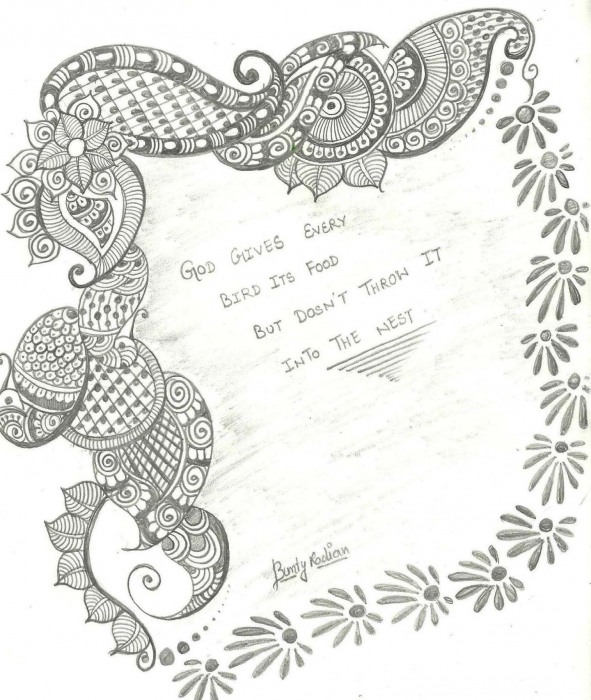 God Gives Every
Bird Its Food
But Dosn't Throw It
Into The Nest.
Bunty Kadian